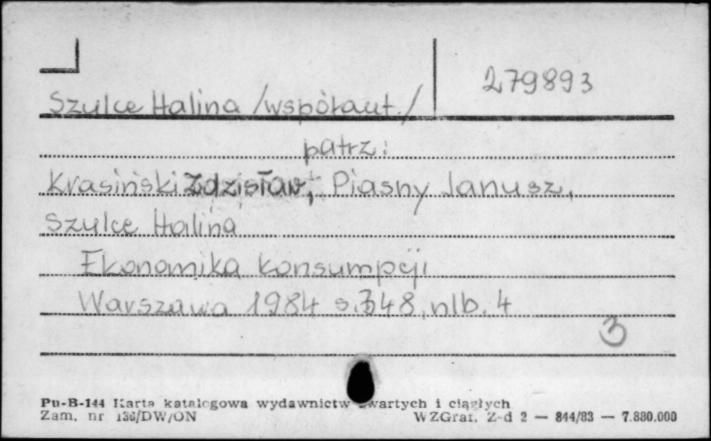 279893
Szulce Halina /współaut./
patrz:
Krasiński Zdzisław, Piasny Janusz,
Szulce Halina
Ekonomika konsumpcji
Warszawa 1984 s. 348, nlb. 4
3
Pu-B-144 Karta katalogowa wydawnictw zwartych i ciągłych
Zam. nr 136/DW/ON WZGraf. Z-d 2 — 844/83 — 7.880.000